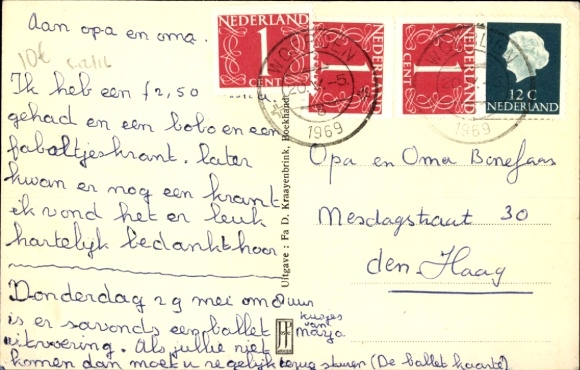 Aan opa en oma.
10€
Ik heb een f2,50
gehad en een bobo en een
fabeltjeskrant. later
kwam er nog een krant
ik vond het er leuk
hartelijk bedankt hoor
Donderdag 29 mei om 8 uur
is er savonds een ballet
uitvoering. Als jullie niet
komen dan moet u ze gelijk terug sturen (De ballet kaarte)
kusjes
van
Marja
Uitgave : Fa D. Kraayenbrink, Boekhandel
NEDERLAND
1
CENT
NEDERLAND
1
NEDERLAND
1
CENT
12 C
NEDERLAND
WOERDEN
1969
WOERDEN
1969
Opa en Oma Bonefaas
Mesdagstraat 30
den Haag